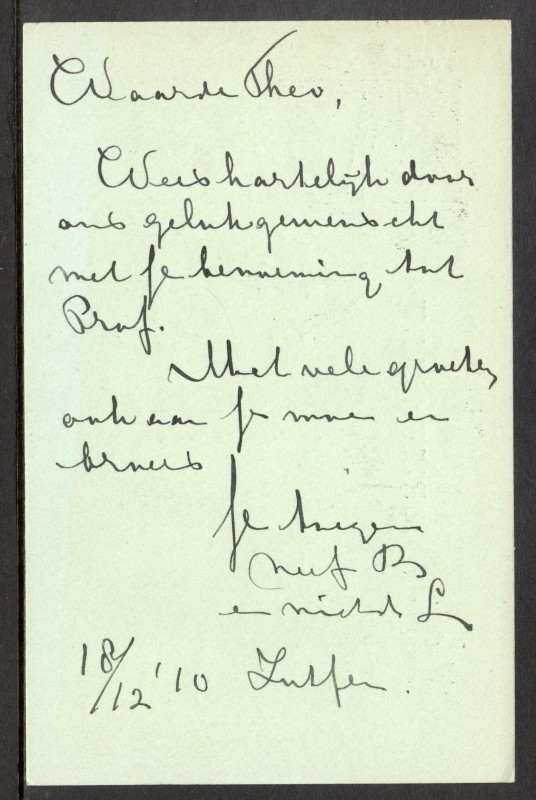 Waarde Theo,
Wees hartelijk door
ons gelukgewenscht
met je benoeming tot
Prof.
Met vele groeten
ook aan je moe en
broers
Je
neef B
en nicht L
18/12 '10 Zutfen.